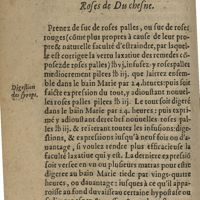 Roses de Du Chesne.
PRenez de suc de roses palles, ou suc de roses
rouges (côme plus propre à cause de leur pro-
pre & naturelle faculté d'estraindre, par laquel-
le est corrigée la vertu laxatiue des remedes cô-
posez de roses palles) lb vj, infusez y roses palles
mediocrement pilees lb iij. que lairrez ensemble
dans le bain Marie par 24. heures: puis soit
faicte expression du tout, y adioustant nouuel-
les roses palles pilees lb iij. Le tout soit digeré
au bain Marie par 24. heures; puis expri-
mé y adioustant derechef nouuelles roses pal-
les lb iij. & reiterant toutes les infusions: dige-
stions, & expressions iusqu'à neuf ou dix fois se-
lon, si voulez rendre plus efficacieuse la
faculté laxatiue qui y est. La derniere expression
soit versee en vn ou plusieurs matras pour estre
digeree au bain Marie tiede par vingt-quatre
heures, ou dauantage: iusques à ce qu'il appa-
roisse au fond du vaisseau certaine hypostase ou
Digestion
du syrop.